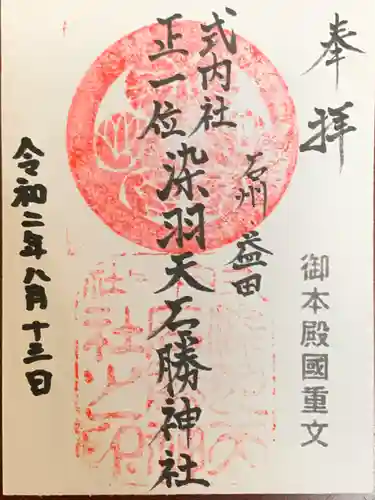 奉拝
御本殿國重文
石州益田
式内社
正一位
染羽天石勝神社
令和二年八月十三日